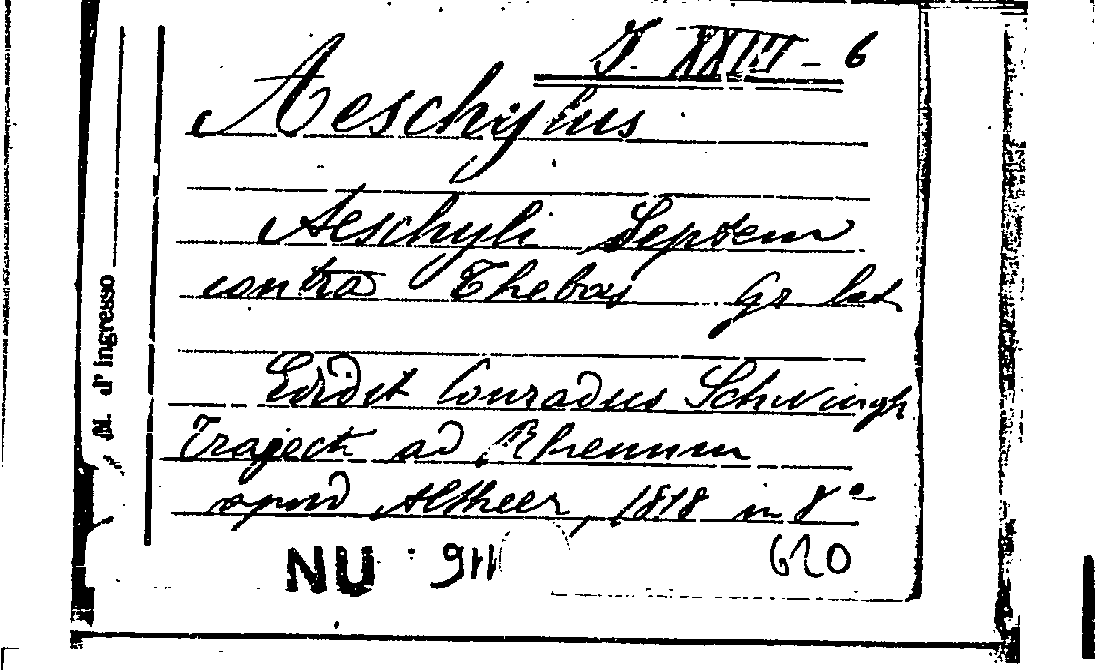 J. XXIII - 6
Aeschylus
Aeschyli Septem
contra Thebas Gr lat
Edidit Conradus Schwingh
Traject ad Rhenum
apud Altheer, 1818 in 8°
NU 911
620
N. d'ingresso